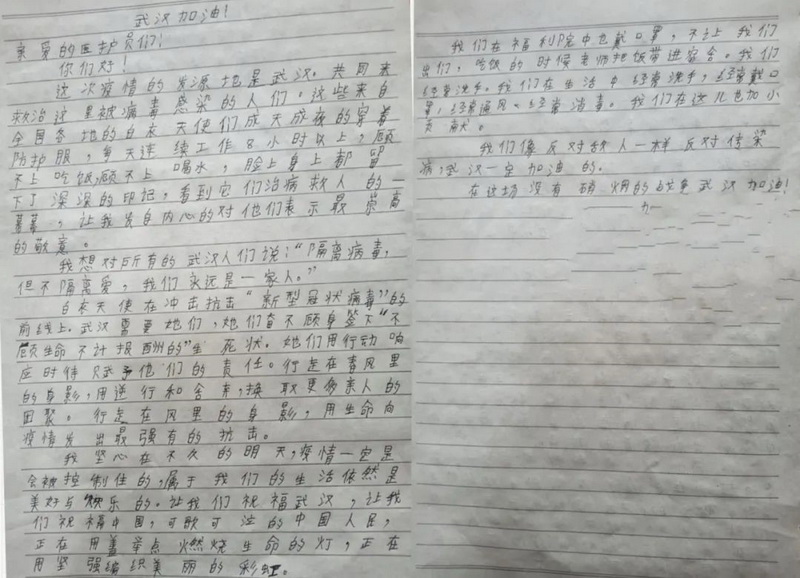 武汉加油!
亲爱的医护员们!
你们好!
这次疫情的发源地是武汉。共同来
救治这里被病毒感染的人们。这些来自
全国各地的白衣天使们成天成夜的穿着
防护服,每天连续工作8小时以上,顾
不上吃饭,顾不上喝水,脸上身上都留
下了深深的印记,看到它们治病救人的一
幕幕,让我发自内心的对他们表示最崇高
的敬意。
我想对所有的武汉人们说:“隔离病毒,
但不隔离爱,我们永远是一家人。”
白衣天使在冲击抗击“新型冠状病毒”的
前线上.武汉需要她们,她们奋不顾身签下“不
顾生命不计报酬的”生死状。她们用行动响
应时代赋予他们的责任。行走在春风里
的身影,用逆行和舍弃,换取更多亲人的
团聚。行走在风里的身影,用生命向
疫情发出最强有的抗击。
我坚心在不久的明天,疫情一定是
会被控制住的,属于我们的生活依然是
美好与快乐的.让我们祝福武汉,让我
们祝福中国,可歌可泣的中国人民,
正在用点火燃烧生命的灯,正在
用坚强编织美丽的彩虹。
我们在福利院中也戴口罩,不让我们
出们,吃饭的时候老师把饭带进宿舍。我们
经常洗手。我们在生活中经常洗手,经常戴口
罩,经常通风、经常消毒。我们在这儿也加小
贡献。
我们像反对敌人一样反对传染
病,武汉一定加油的.
在这场没有硝烟的战争武汉加油!